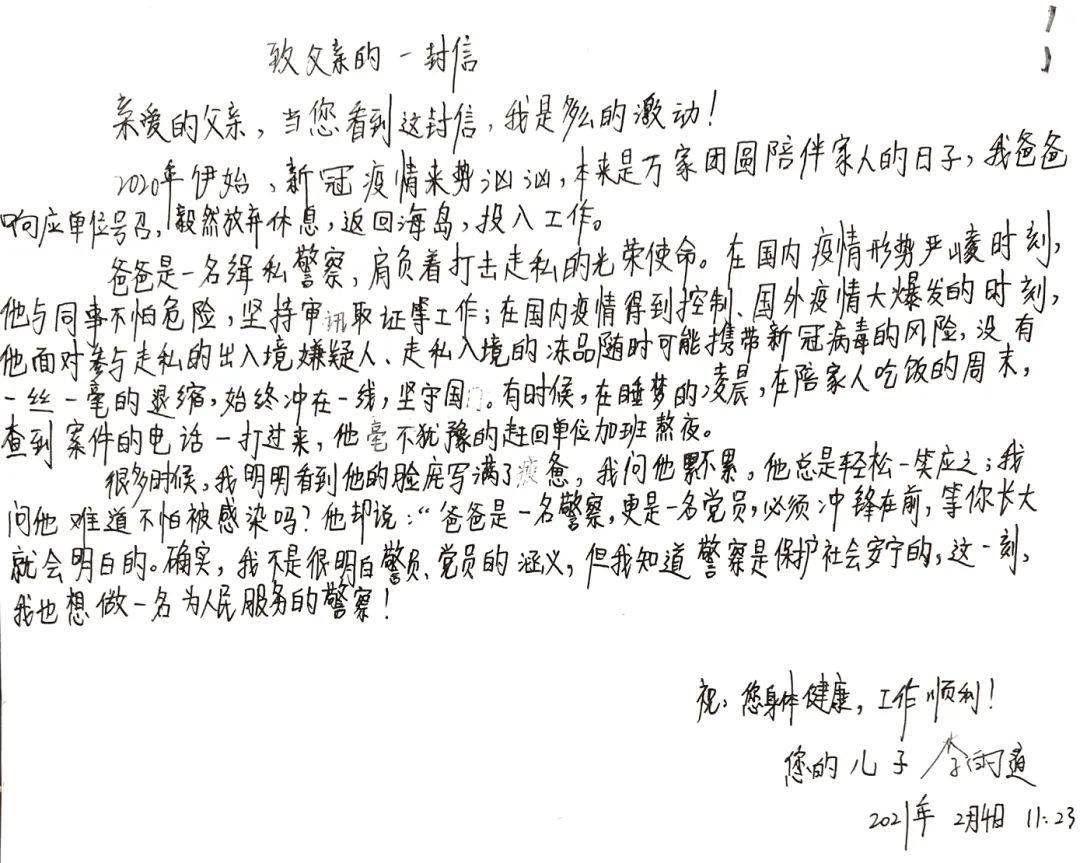 致父亲的一封信
亲爱的父亲，当您看到这封信，我是多么的激动！
2020年伊始，新冠疫情来势汹汹，本来是万家团圆陪伴家人的日子，我爸爸
响应单位号召，毅然放弃休息，返回海岛，投入工作。
爸爸是一名缉私警察，肩负着打击走私的光荣使命。在国内疫情形势严峻时刻，
他与同事不怕危险，坚持审讯取证等工作；在国内疫情得到控制、国外疫情大爆发的时刻，
他面对参与走私的出入境嫌疑人、走私入境的冻品随时可能携带新冠病毒的风险，没有
一丝一毫的退缩，始终冲在一线，坚守国门。有时候，在睡梦的凌晨，在陪家人吃饭的周末，
查到案件的电话一打过来，他毫不犹豫的赶回单位加班熬夜。
很多时候，我明明看到他的脸庞写满了疲惫，我问他累不累，他总是轻松一笑应之；我
问他难道不怕被感染吗？他却说：“爸爸是一名警察，更是一名党员，必须冲锋在前，等你长大
就会明白的。确实，我不是很明白警员、党员的涵义，但我知道警察是保护社会安宁的，这一刻，
我也想做一名为人民服务的警察！
祝：您身体健康，工作顺利！
您的儿子 李
2021年 2月4日 11:23